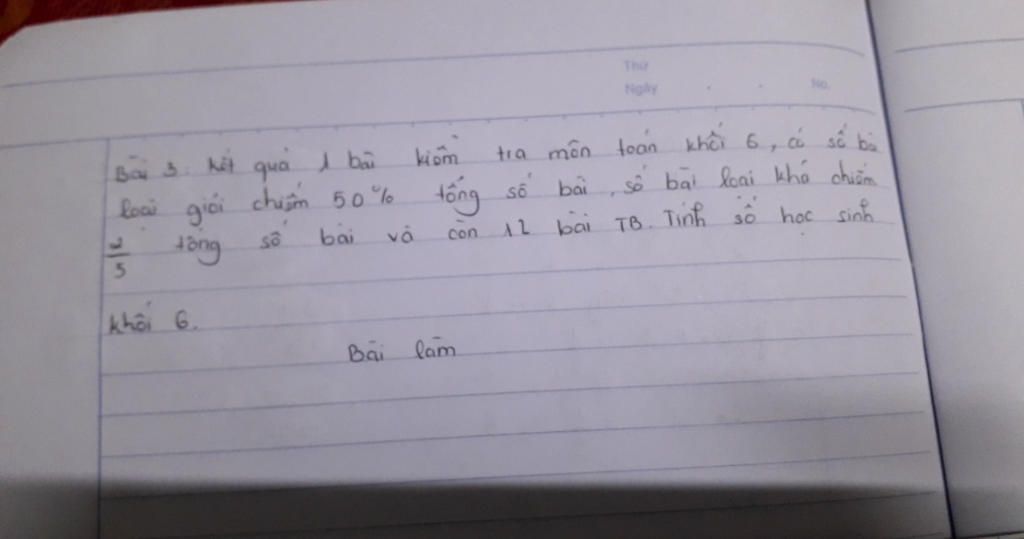 Thứ
Ngày
No.
Bài 3: Kết quả 1 bài kiểm tra môn toán khối 6, có số bà
loại giỏi chiếm 50% tổng số bài, số bài loại khá chiếm
2/5 tổng số bài và còn 12 bài TB. Tính số học sinh
khối 6.
Bài làm